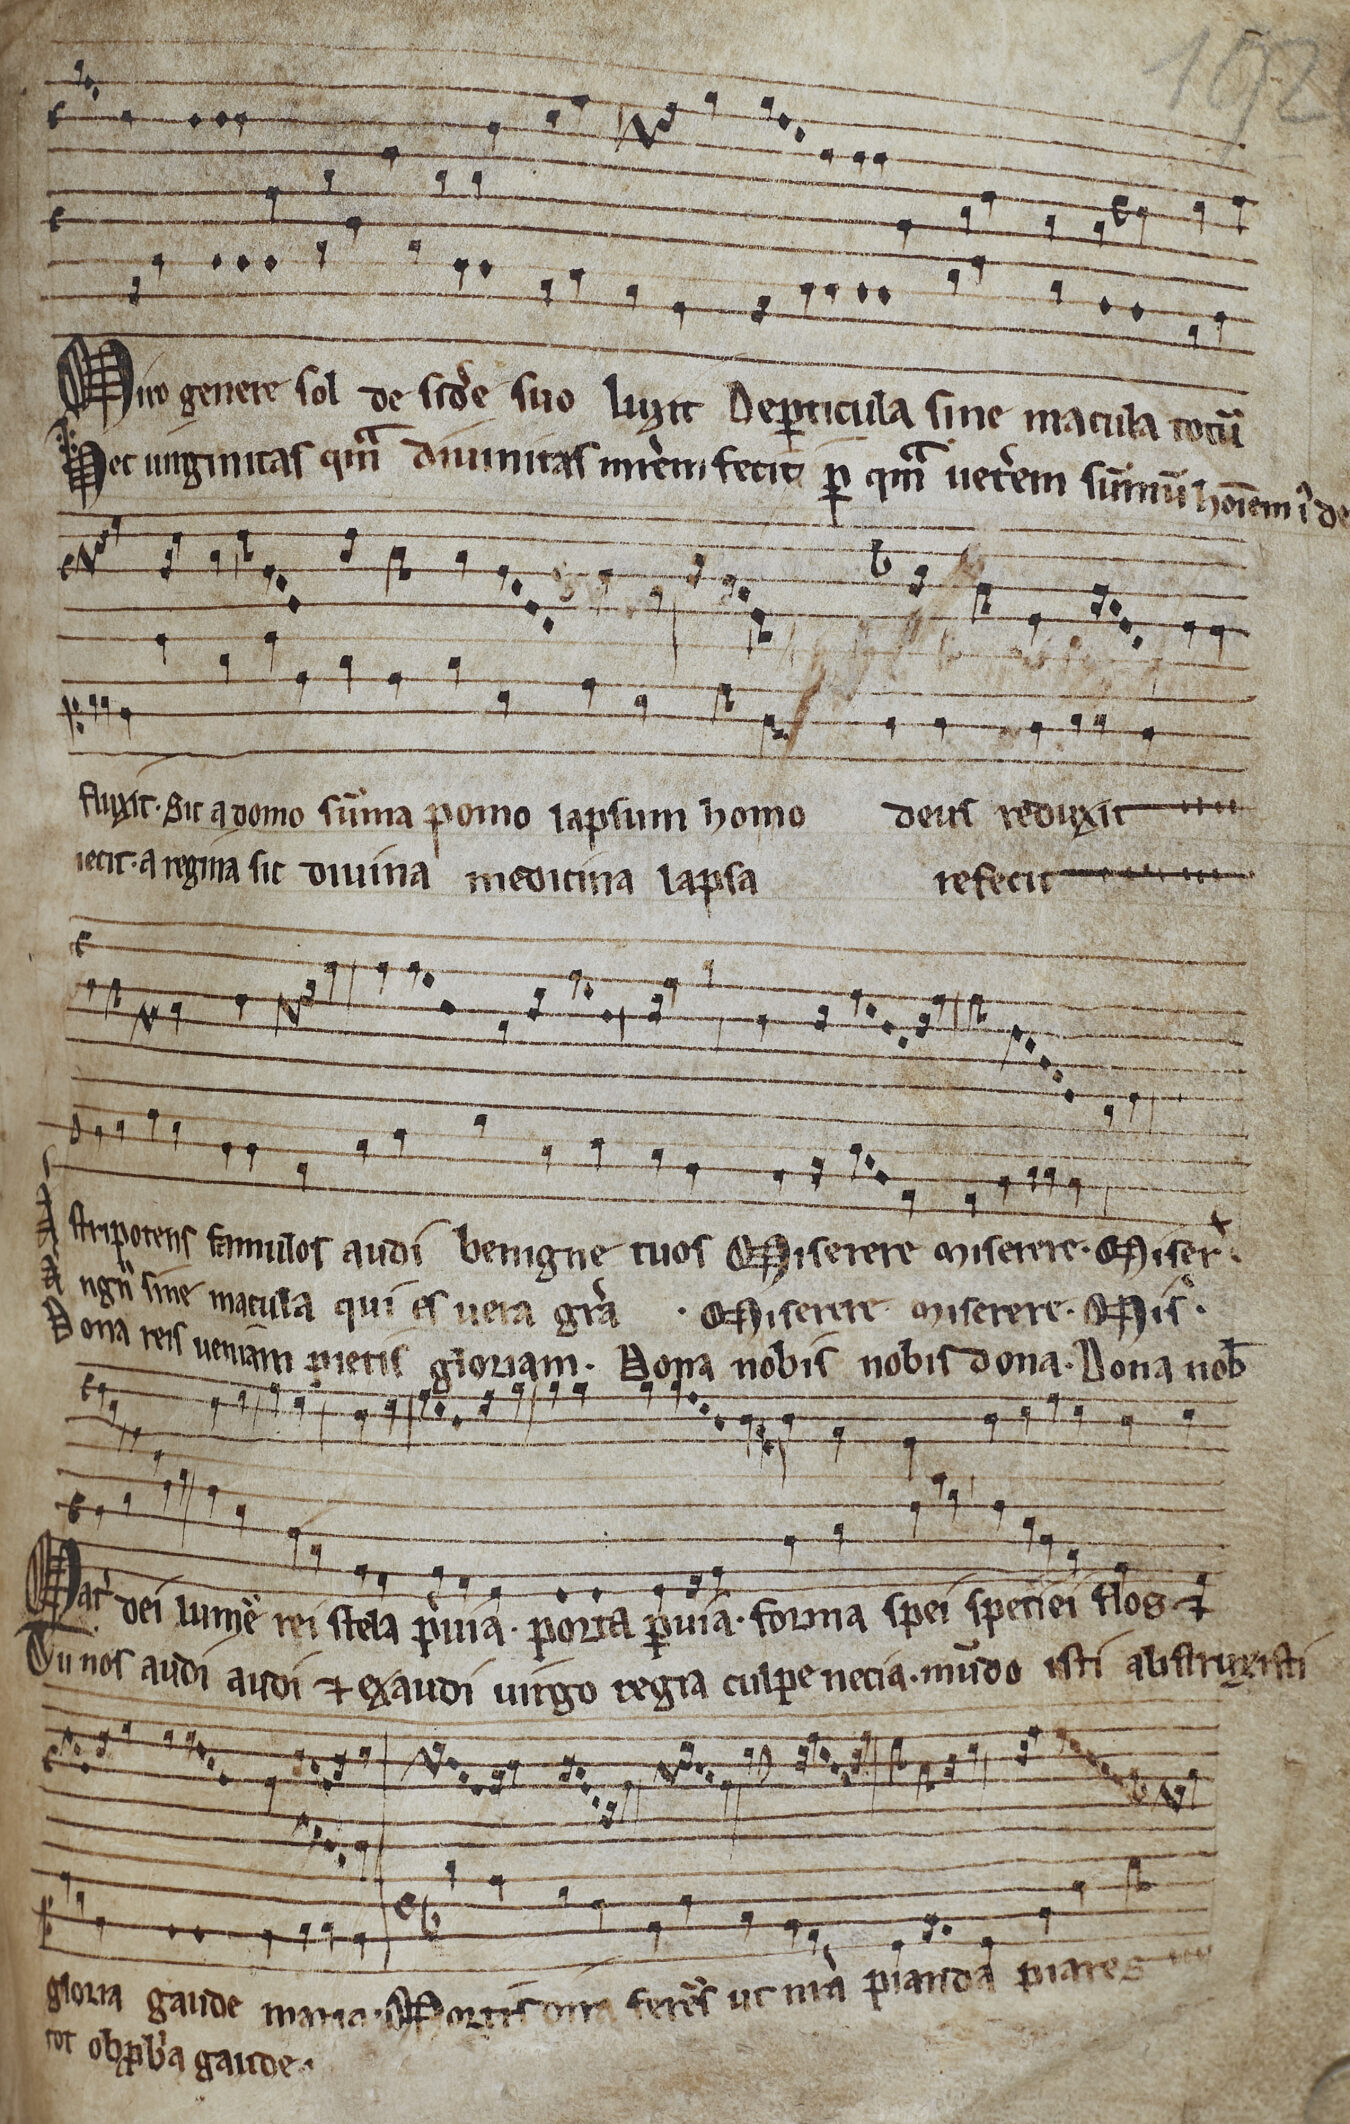 192
Miro genere sol de sid'e suo luxit De p̱ticula sine macula totū
Hec uirginitas qm̄ diuinitas mr̄em fecit p̱ qm̄ uet'em sūmū hōīem ī de
fluxit. Sic a domo sūma pomo lapsum homo deus reduxit
iecit. a regina sic diuina medicina lapsa refecit
Astripotens famulos audi benigne tuos Miserere miserere. Miser'.
Angn' sine macula qui es uera gr̄a . Miserere miserere. Mis'.
Dona reis ueniam pietis gloriam. Dona nobis nobis dona. Dona nob̄
Mat' dei lumē rei stela p'uia. porta p̱uia. forma spei speciei flos ⁊
Tu nos audi audi ⁊ exaudi uirgo regia culpe necia. mūdo isti abstruxisti
gloria gaude maria. Mortis fer's ut pianda piares
tot obp̱b'a gaude.